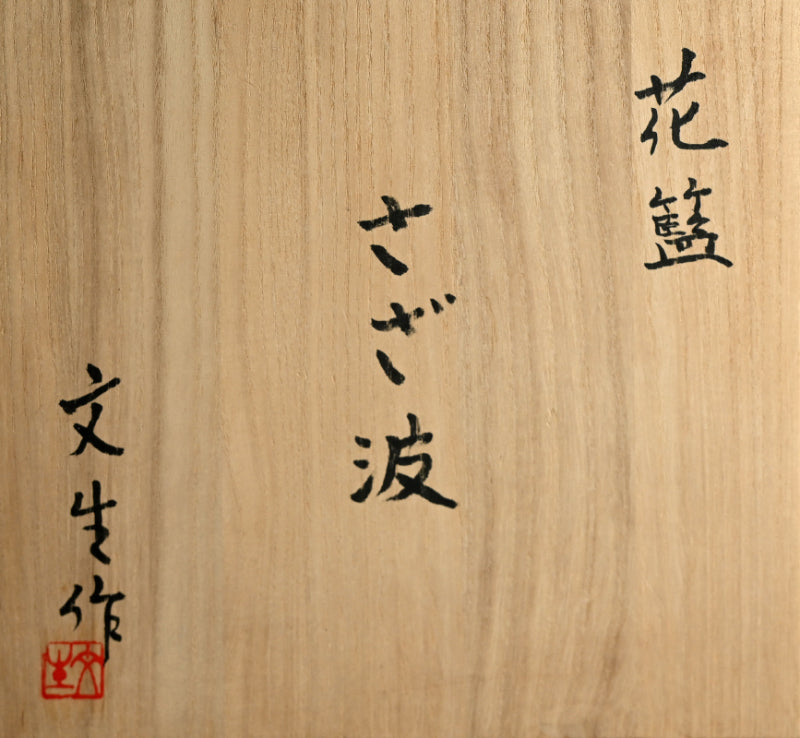 花籃
さざ波
文生作
文生